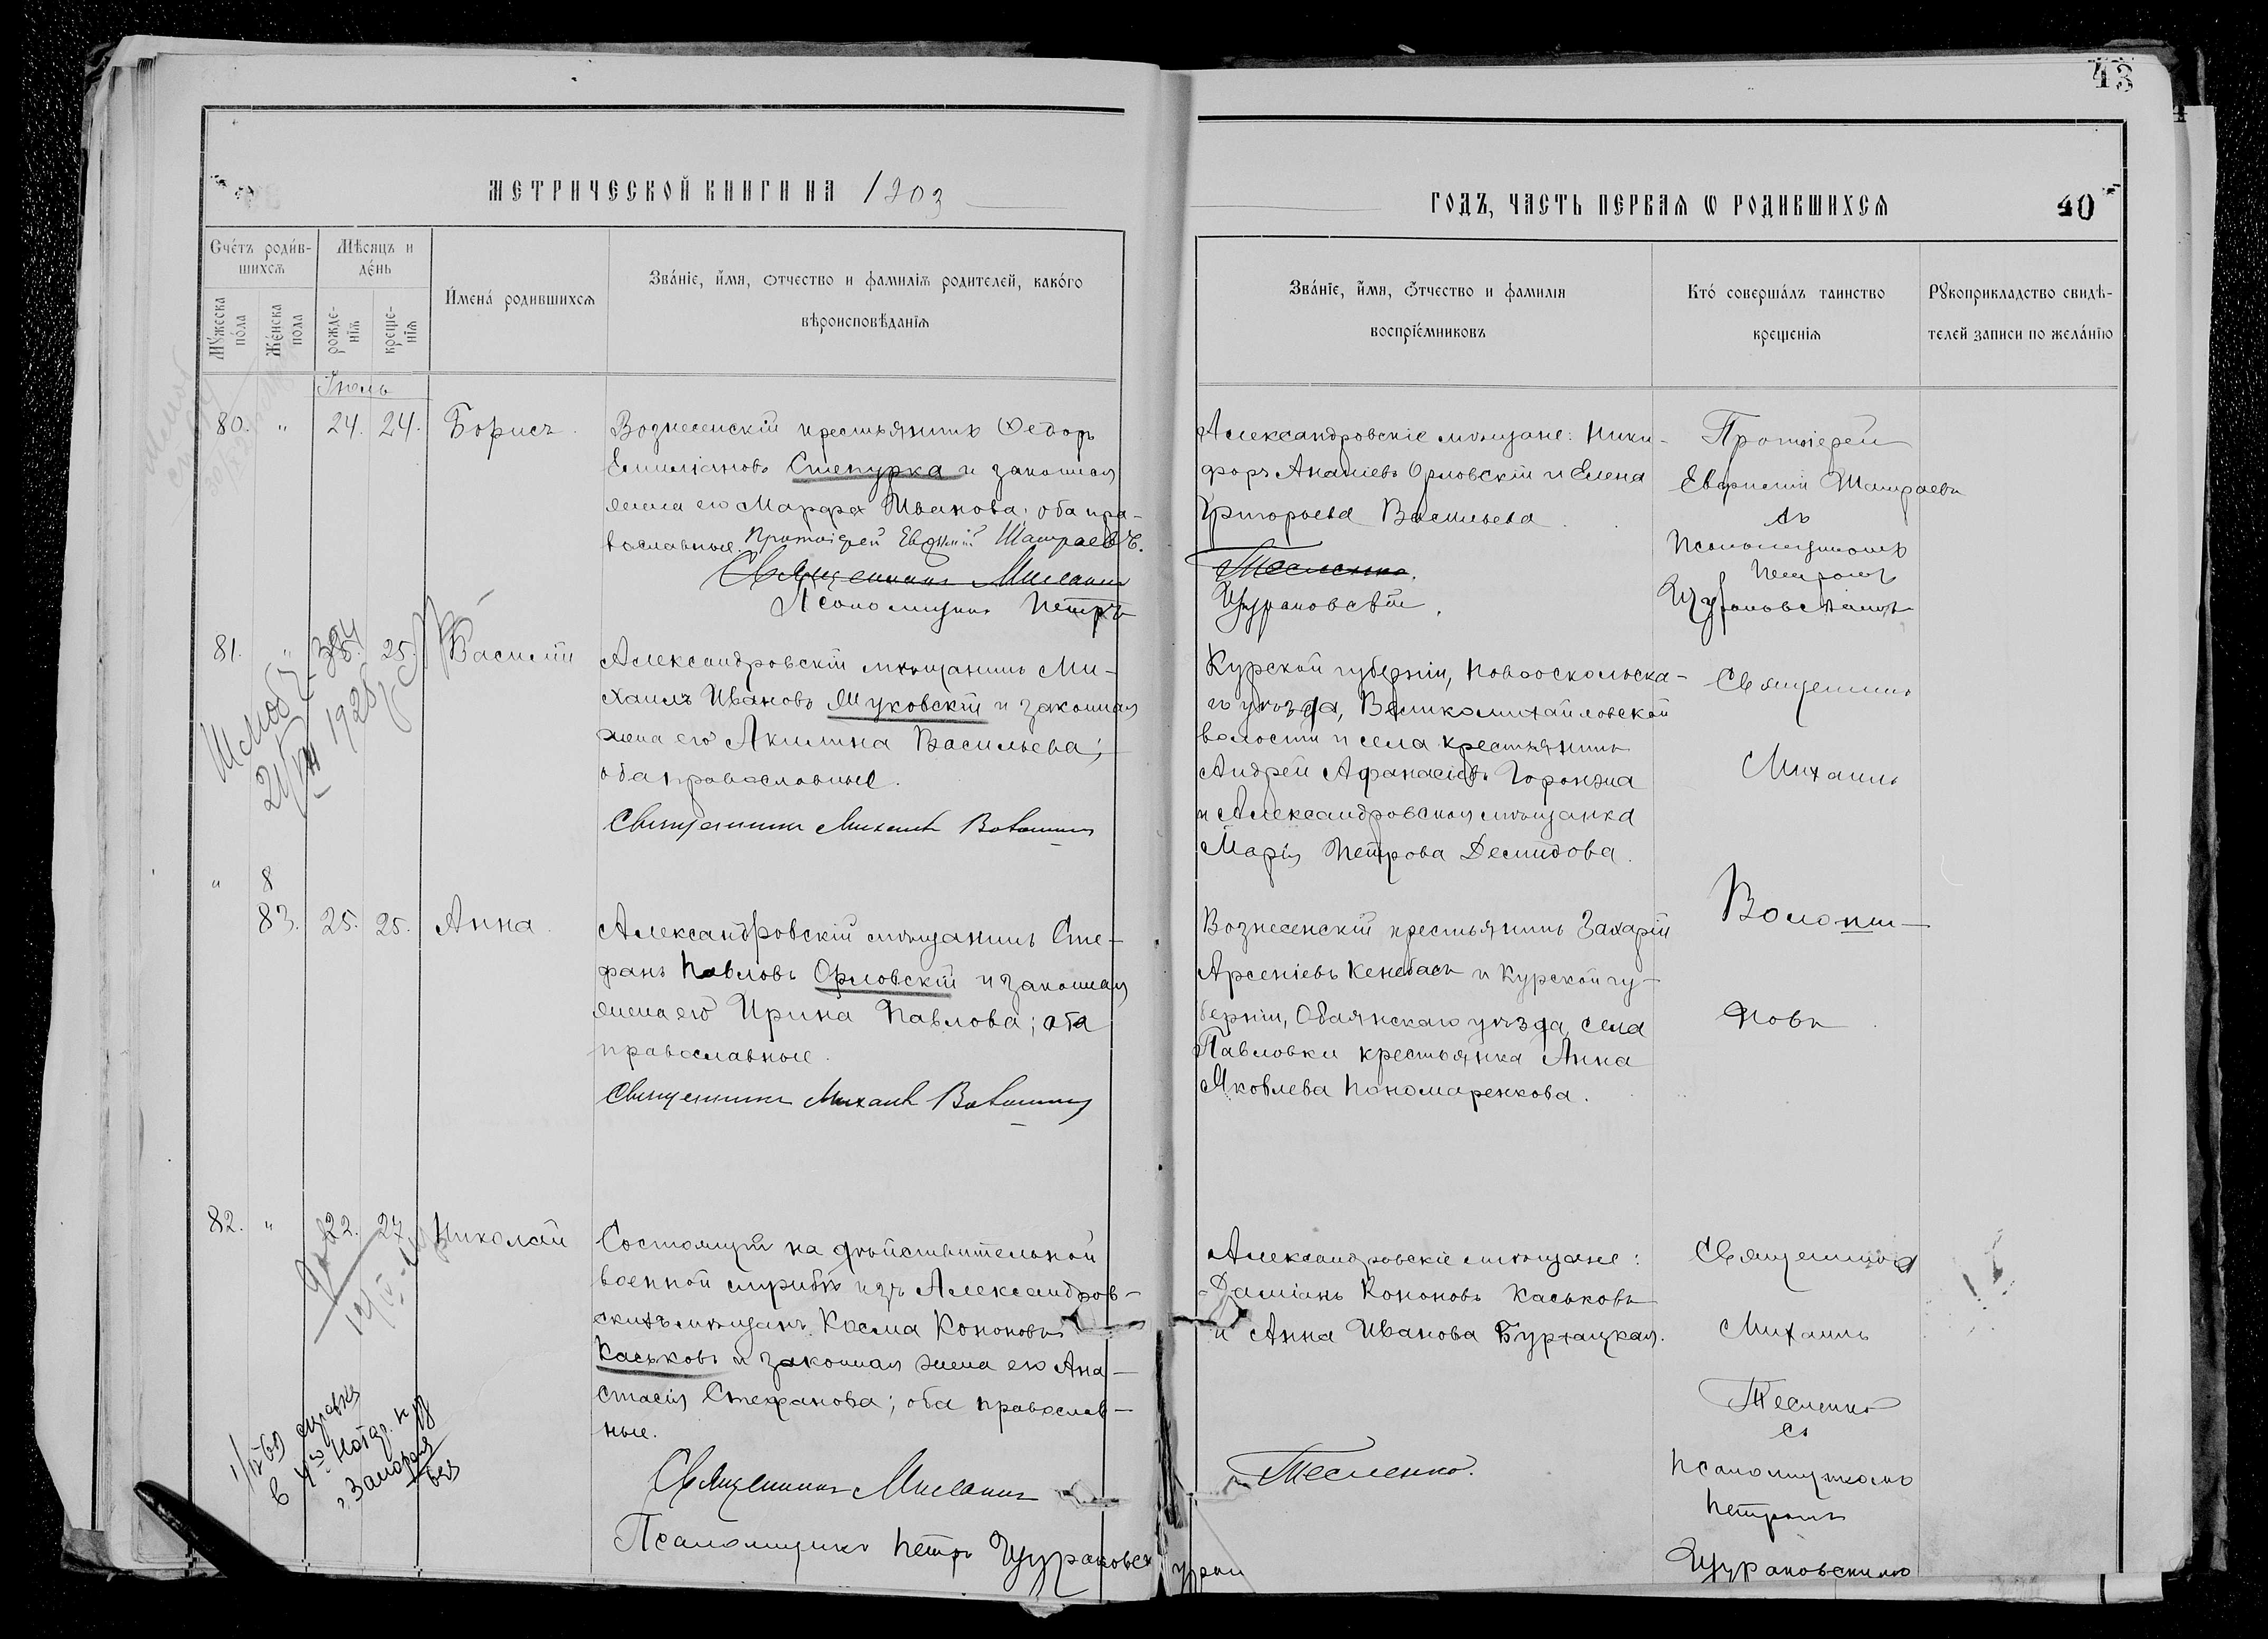 43
МЕТРИЧЕСКОЙ КНИГИ НА 1903
ГОДЪ, ЧАСТЬ ПЕРВАЯ Ѡ РОДИВШИХСЯ
40
Счетъ родив-
шихся
Мѣсяцъ и
день
Мужеска
пола
Женска
пола
рожде-
нія
креще-
нія
Имена родившихся
Званіе, имя, отчество и фамилія родителей, какого
вѣроисповѣданія
Званіе, имя, отчество и фамилія
воспріемниковъ
Кто совершалъ таинство
крещенія
Рукоприкладство свидѣ-
телей записи по желанію
80. " 24. 24. Борисъ.
Вознесенскій крестьянинъ Ѳедоръ
Емиліановъ Степурка и законная
жена его Марфа Иванова; оба пра-
вославные. Протоіерей Евфимій
Священникъ
Псаломщикъ Петръ
Александровскіе мѣщане: Ники-
форъ Ананіевъ Орловскій и Елена
Григорьева Васильева.
Тесленко.
Щураковскій.
Протоіерей
Евфимій
съ
Псаломщикомъ
Петромъ
Щураковскимъ
81. " 25. Василій
Александровскій мѣщанинъ Ми-
хаилъ Ивановъ Жуковскій и законная
жена его Акилина Васильева;
оба православные.
Священникъ Михаилъ
Курской губерніи, Новооскольска-
го уѣзда, Великомихайловской
волости и села крестьянинъ
Андрей Афанасіевъ
и Александровская мѣщанка
Марія Петрова Демидова.
Священникъ
Михаилъ
1928
" 8
83. 25. 25. Анна.
Александровскій мѣщанинъ Сте-
фанъ Павловъ Орловскій и законная
жена его Ирина Павлова; оба
православные.
Священникъ Михаилъ
Вознесенскій крестьянинъ Захарій
Арсеніевъ и Курской гу-
берніи, Обаянскаго уѣзда, села
Павловки крестьянка Анна
Яковлева Пономаренкова.
82. " 22. 27. Николай
Состоящій на дѣйствительной
военной службѣ изъ Александров-
скихъ мѣщанъ Косма Кононовъ
Каськовъ и законная жена его Ана-
стасія Стефанова; оба православ-
ные.
Священникъ
Псаломщикъ Петръ
Александровскіе мѣщане:
Даміанъ Кононовъ Каськовъ
и Анна Иванова
Тесленко.
Священникъ
Михаилъ
Тесленко
съ
псаломщикомъ
Петромъ
Щураковскимъ
справка